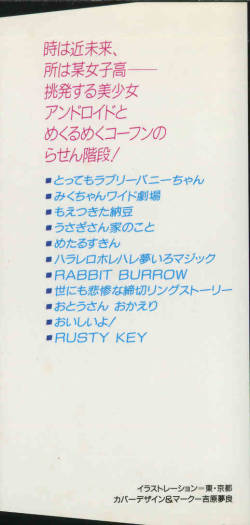 時は近未来、
所は某女子高——
挑発する美少女
アンドロイドと
めくるめくコーフンの
らせん階段！
■とってもラブリーバニーちゃん
■みくちゃんワイド劇場
■もえつきた納豆
■うさぎさん家のこと
■めたるすきん
■ハラレロホレハレ夢いろマジック
■RABBIT BURROW
■世にも悲惨な締切リングストーリー
■おとうさん おかえり
■おいしいよ！
■RUSTY KEY
イラストレーション＝東・京都
カバーデザイン&マーク＝吉原夢良